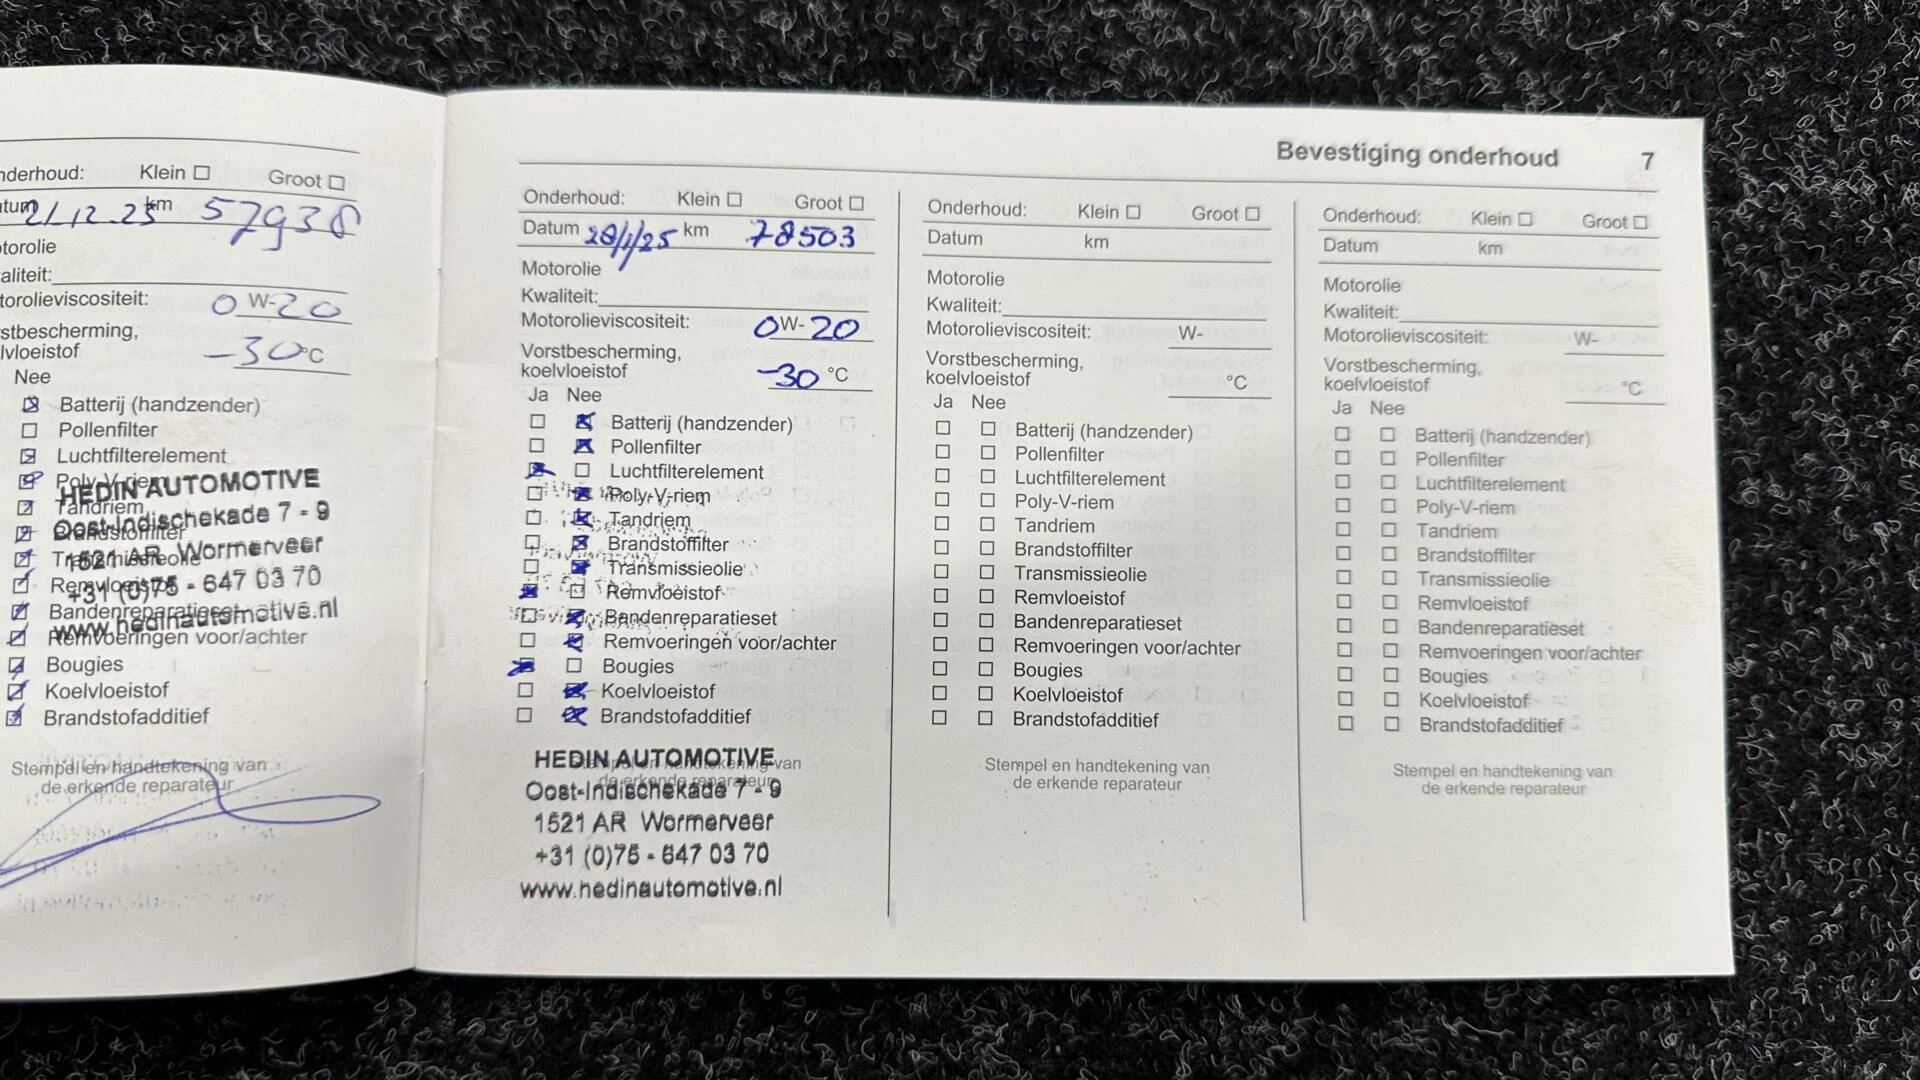 nderhoud: Klein ☐ Groot ☐
tum 21.12.23 km 57938
torolie
aliteit:
torolieviscositeit: 0 W-20
stbescherming,
lvloeistof -30 °C
Nee
Batterij (handzender)
Pollenfilter
Luchtfilterelement
Poly-V-riem
Tandriem
Brandstoffilter
Transmissieolie
Remvloeistof
Bandenreparatieset
Remvoeringen voor/achter
Bougies
Koelvloeistof
Brandstofadditief
HEDIN AUTOMOTIVE
Oost-Indischekade 7 - 9
1521 AR Wormerveer
+31 (0)75 - 647 03 70
www.hedinautomotive.nl
Stempel en handtekening van
de erkende reparateur
Bevestiging onderhoud 7
Onderhoud: Klein ☐ Groot ☐
Datum 28/1/25 km 78503
Motorolie
Kwaliteit:
Motorolieviscositeit: 0W-20
Vorstbescherming,
koelvloeistof -30 °C
Ja Nee
Batterij (handzender)
Pollenfilter
Luchtfilterelement
Poly-V-riem
Tandriem
Brandstoffilter
Transmissieolie
Remvloeistof
Bandenreparatieset
Remvoeringen voor/achter
Bougies
Koelvloeistof
Brandstofadditief
Stempel en handtekening van
de erkende reparateur
HEDIN AUTOMOTIVE
Oost-Indischekade 7 - 9
1521 AR Wormerveer
+31 (0)75 - 647 03 70
www.hedinautomotive.nl
Onderhoud: Klein ☐ Groot ☐
Datum km
Motorolie
Kwaliteit:
Motorolieviscositeit: W-
Vorstbescherming,
koelvloeistof °C
Ja Nee
Batterij (handzender)
Pollenfilter
Luchtfilterelement
Poly-V-riem
Tandriem
Brandstoffilter
Transmissieolie
Remvloeistof
Bandenreparatieset
Remvoeringen voor/achter
Bougies
Koelvloeistof
Brandstofadditief
Stempel en handtekening van
de erkende reparateur
Onderhoud: Klein ☐ Groot ☐
Datum km
Motorolie
Kwaliteit:
Motorolieviscositeit: W-
Vorstbescherming,
koelvloeistof °C
Ja Nee
Batterij (handzender)
Pollenfilter
Luchtfilterelement
Poly-V-riem
Tandriem
Brandstoffilter
Transmissieolie
Remvloeistof
Bandenreparatieset
Remvoeringen voor/achter
Bougies
Koelvloeistof
Brandstofadditief
Stempel en handtekening van
de erkende reparateur